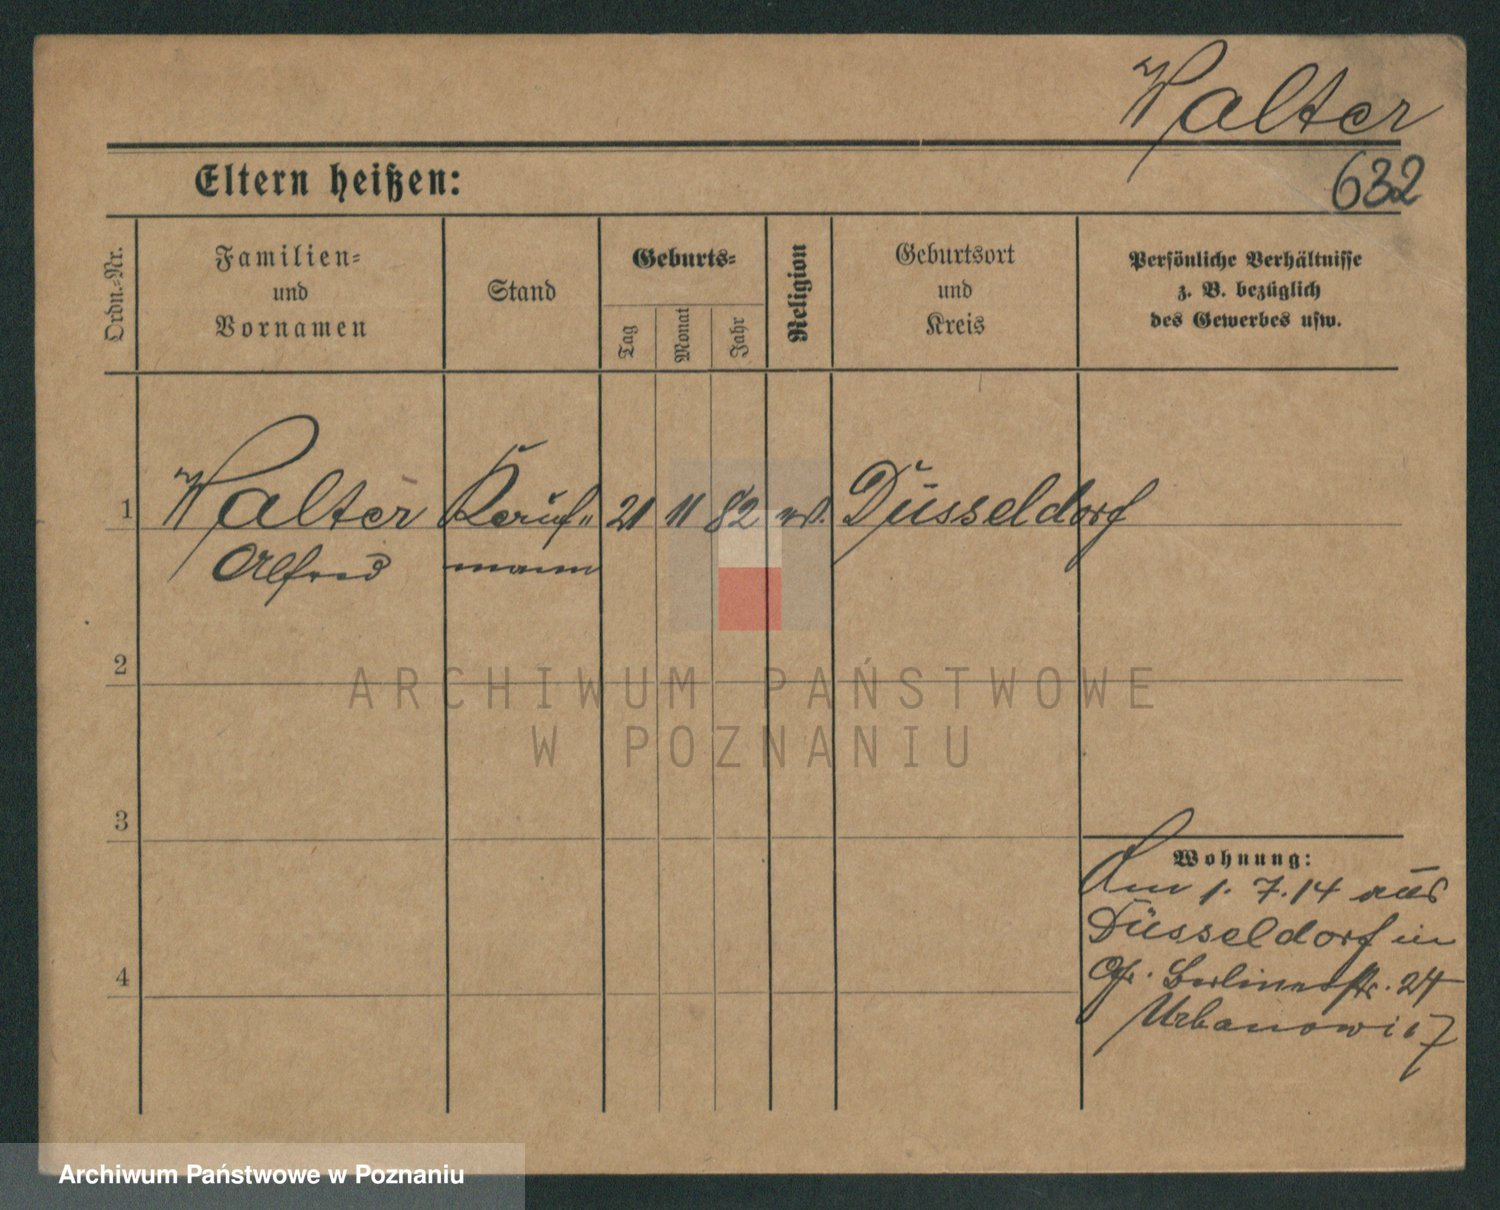 Walter
632
Eltern heißen:
Ordn.-Nr.
Familien-
und
Vornamen
Stand
Geburts-
Tag
Monat
Jahr
Religion
Geburtsort
und
Kreis
Persönliche Verhältnisse
z. B. bezüglich
des Gewerbes usw.
1 Walter Kauf- 21 11 82 Düsseldorf
Alfred mann
2
ARCHIWUM PAŃSTWOWE
W POZNANIU
3
Wohnung:
Am 1. 7. 14 aus
Düsseldorf in
Berlinerstr. 24
4
Urbanowicz
Archiwum Państwowe w Poznaniu